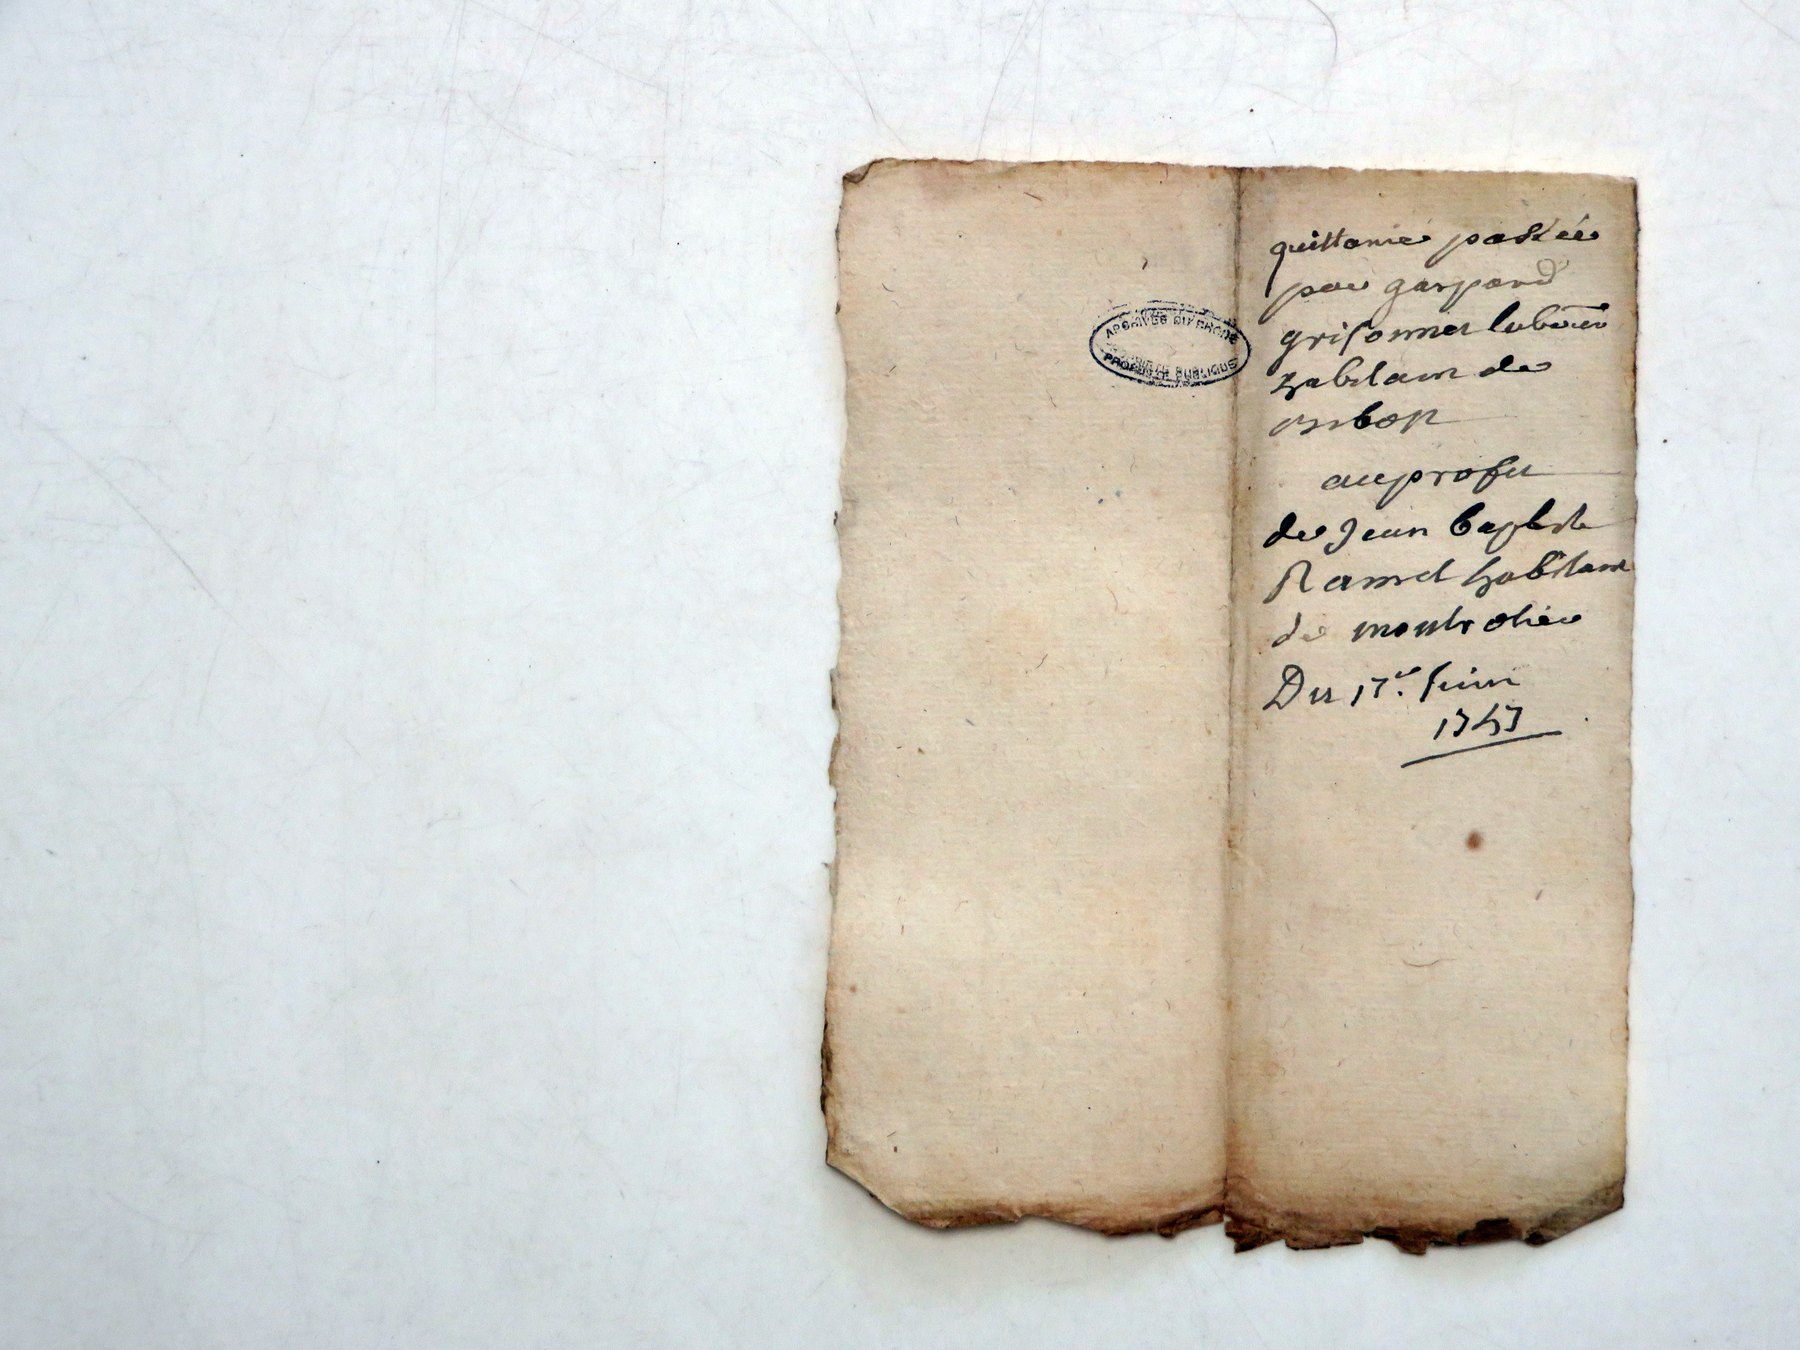 ARCHIVES DU RHONE
PROPRIÉTÉ PUBLIQUE
quittance passée
par gaspard
grisonnet
habitant de
au profit
de Jean baptiste
Ramel habitant
de
Du 17e. Juin
1747